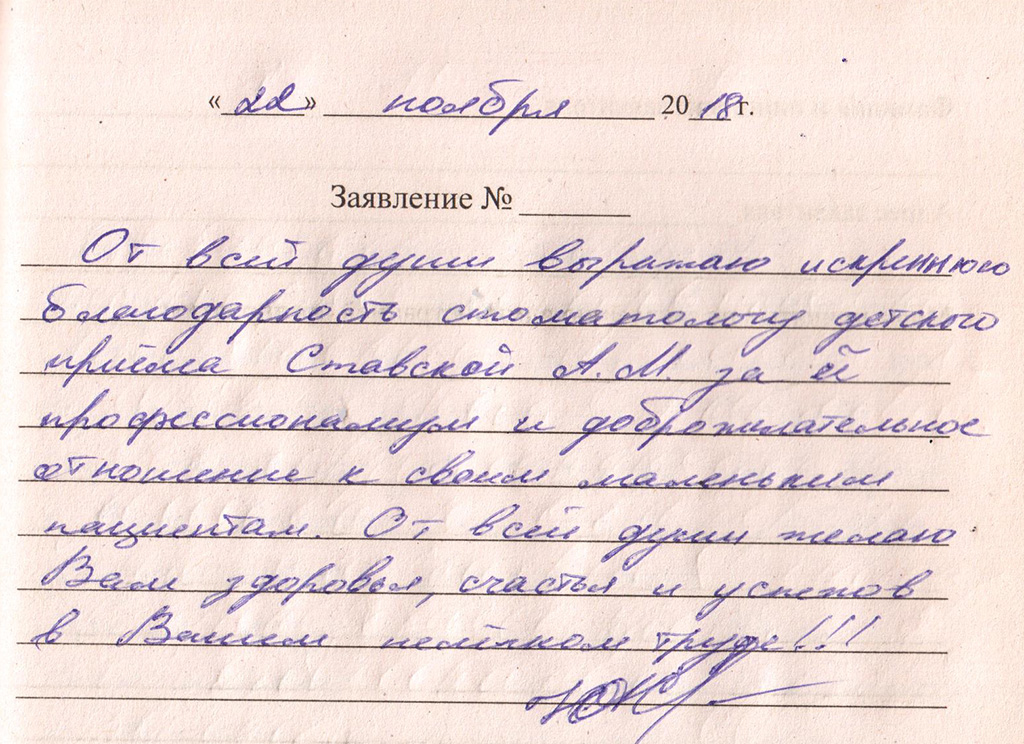 « 22 » ноября 2018 г.
Заявление № ______
От всей души выражаю искреннюю
благодарность стоматологу детского
приёма Ставской А.М. за её
профессионализм и доброжелательное
отношение к своим маленьким
пациентам. От всей души желаю
Вам здоровья, счастья и успехов
в Вашем нелёгком труде!!!